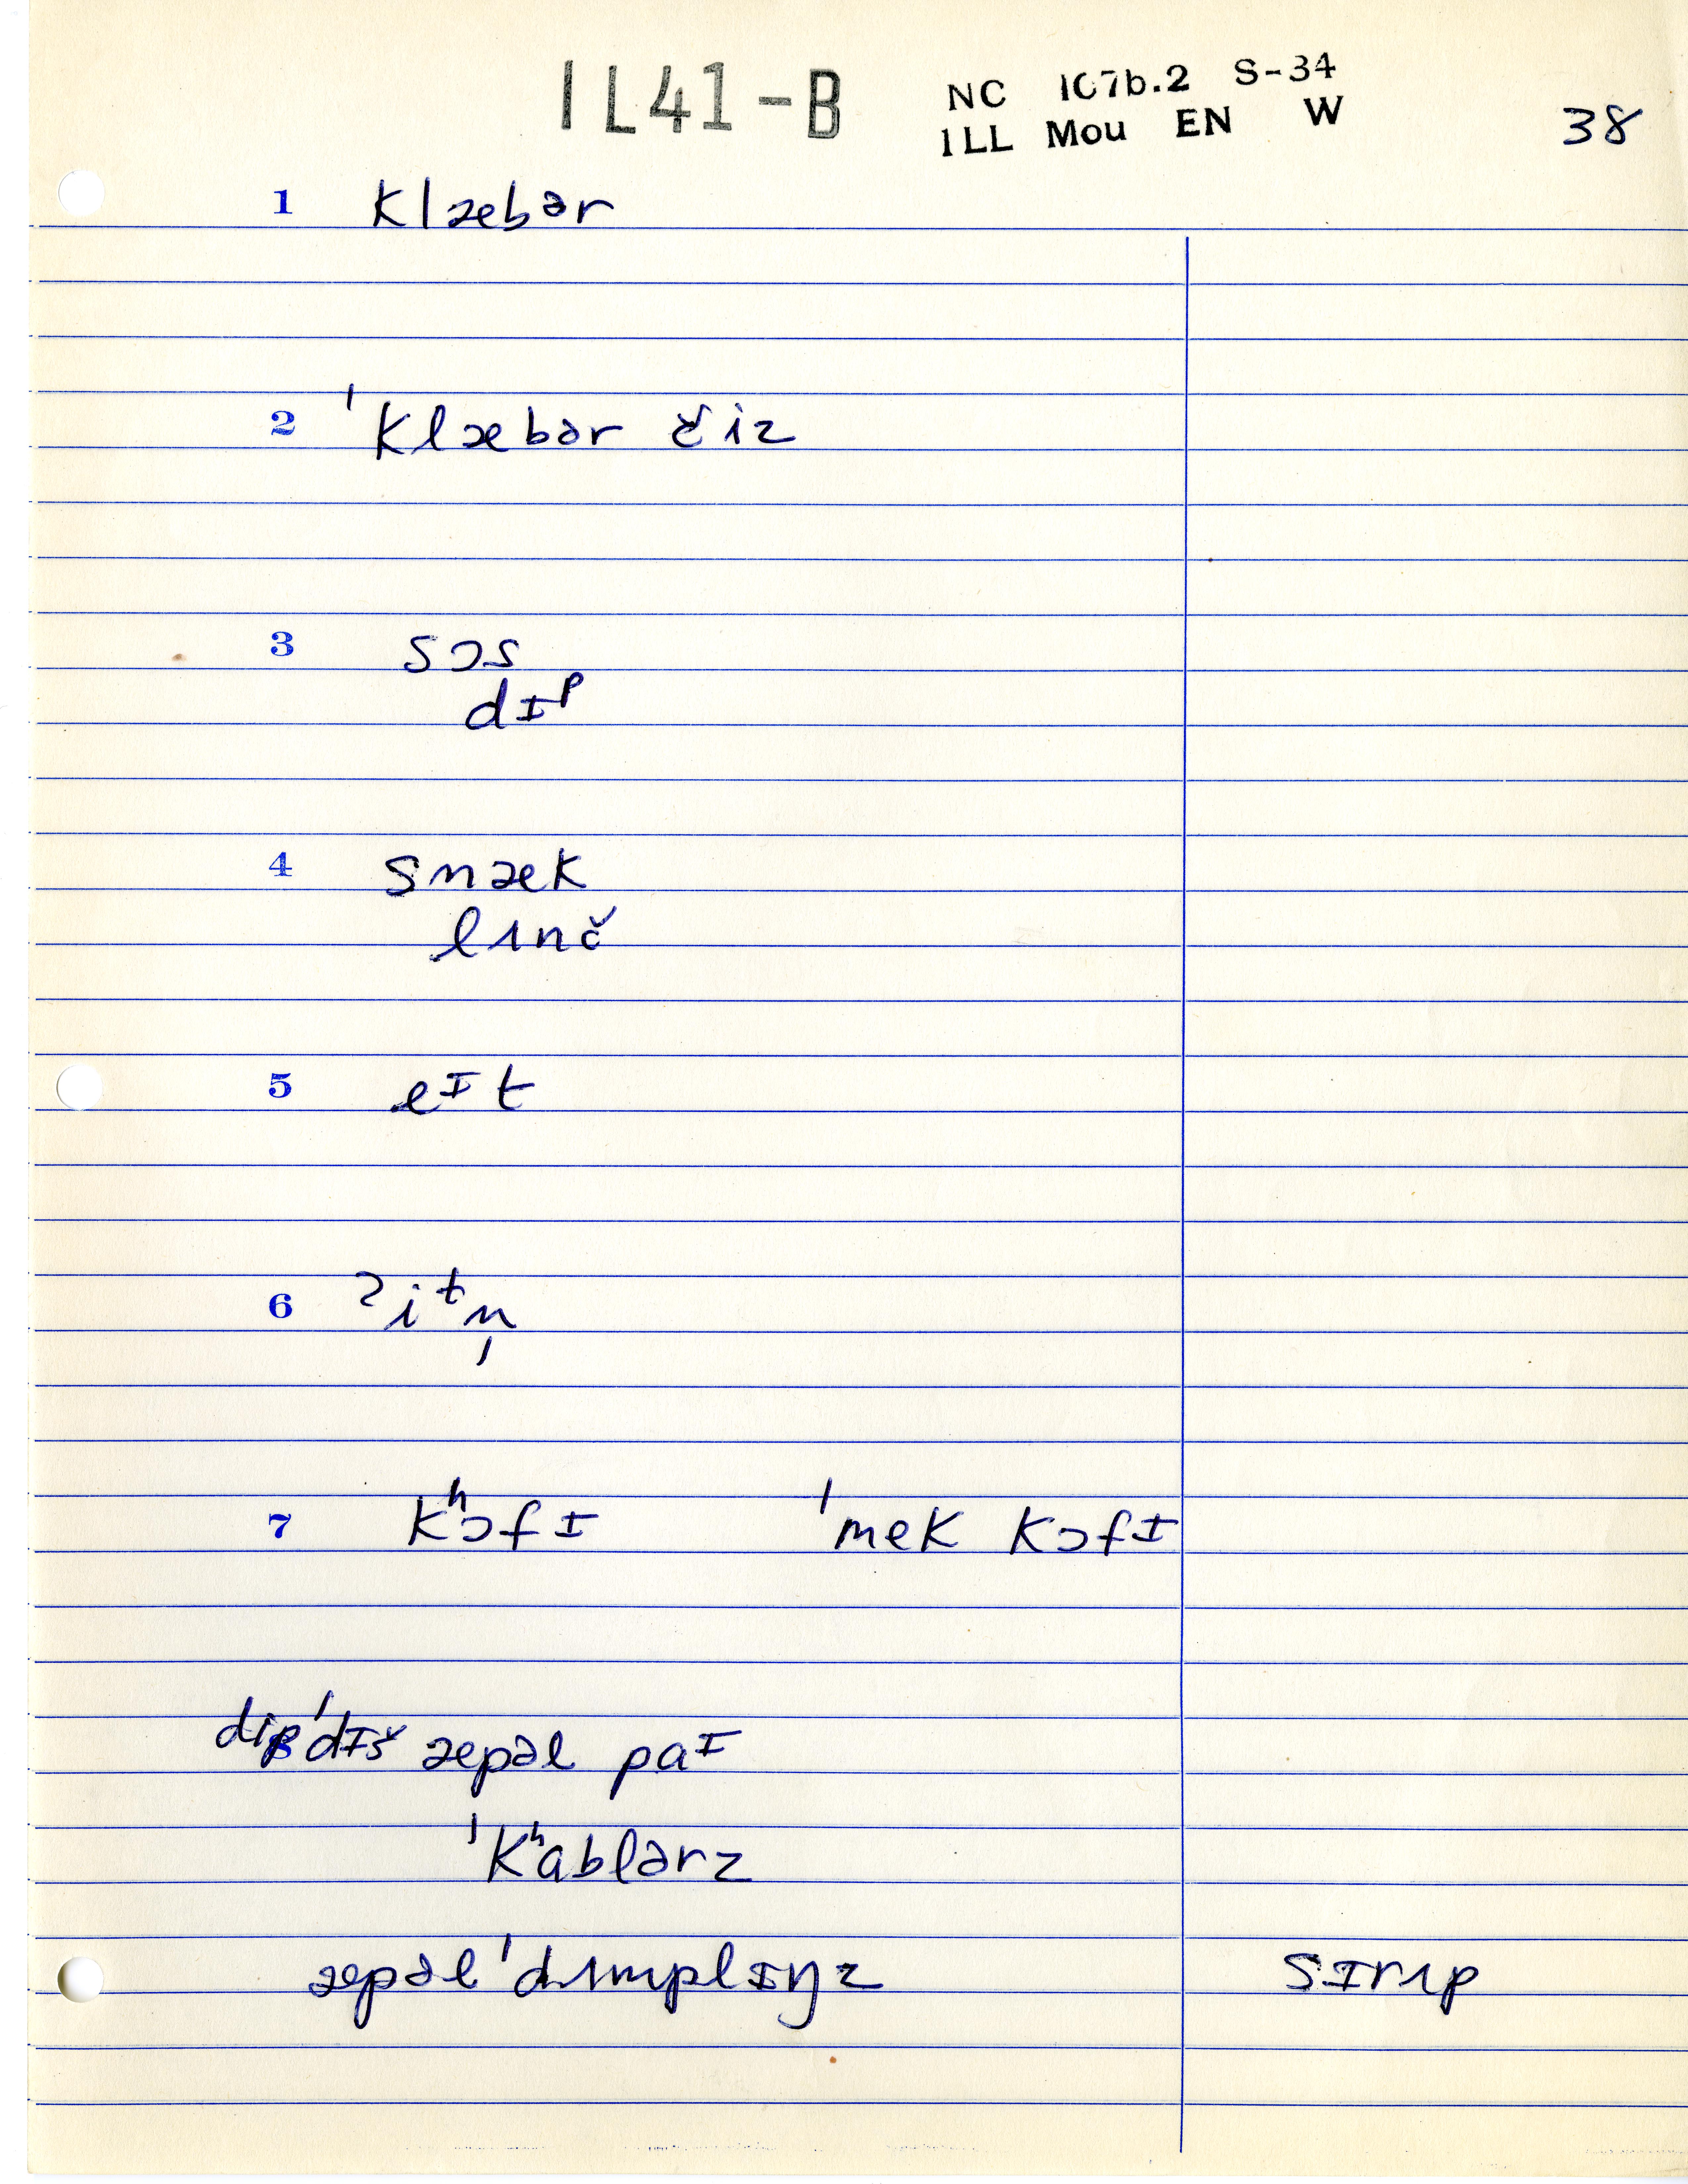 IL41-B
NC 107b.2 S-34
ILL Mou EN W
38
1 klæbər
2 ˈklæbər čiz
3 sɔs
dɪᵖ
4 snæk
lʌnč
5 eᶦt
6 ʔiᵗn̩
7 kʰɔfɪ ˈmek kɔfɪ
8 dipˈdɪš æpəl paᶦ
ˈkʰablərz
æpəl ˈdʌmplɪŋz sɪrʌp